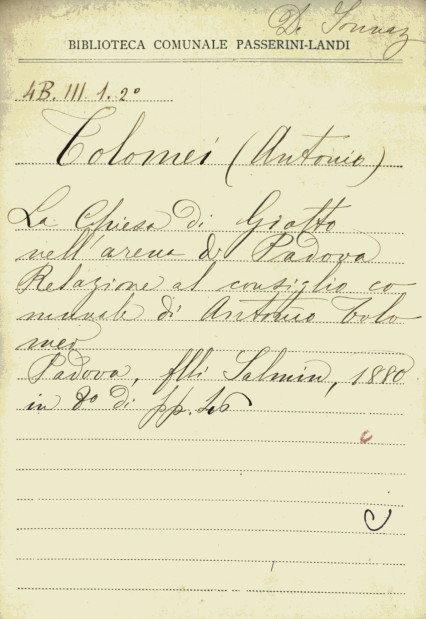 BIBLIOTECA COMUNALE PASSERINI-LANDI
4B. III 1. 2º
Tolomei (Antonio)
La Chiesa di Giotto
nell'arena di Padova
Relazione al consiglio co
munale di Antonio Tolo
mei
Padova, flli Salmin, 1880
in 8º di pp.
C